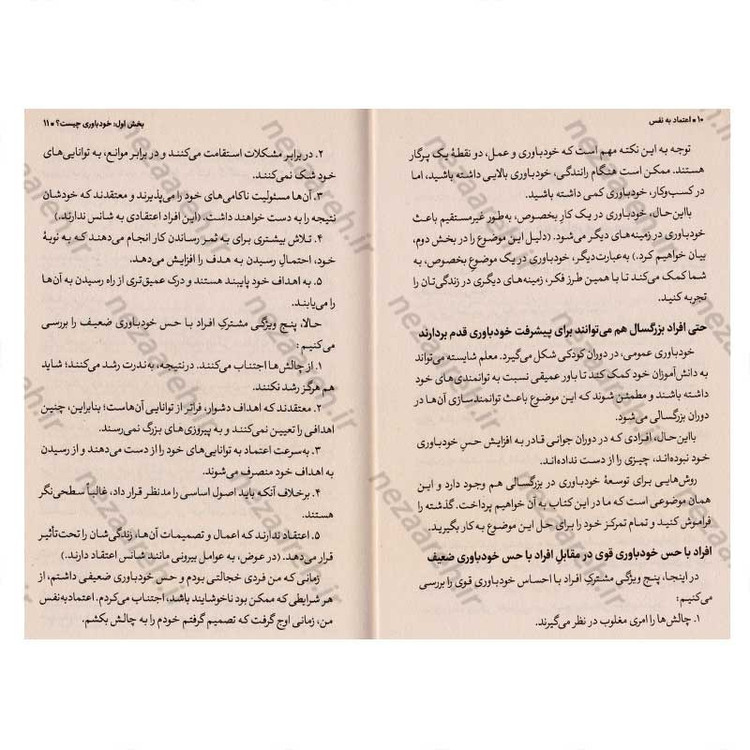 ۱۰ ■ اعتماد به نفس
توجه به این نکته مهم است که خودباوری و عمل، دو نقطهٔ یک پرگار
هستند. ممکن است هنگام رانندگی، خودباوری بالایی داشته باشید، اما
در کسب‌وکار، خودباوری کمی داشته باشید.
بااین‌حال، خودباوری در یک کار بخصوص، به‌طور غیرمستقیم باعث
خودباوری در زمینه‌های دیگر می‌شود. (دلیل این موضوع را در بخش دوم،
بیان خواهیم کرد.) به‌عبارت‌دیگر، خودباوری در یک موضوع بخصوص، به
شما کمک می‌کند تا با همین طرز فکر، زمینه‌های دیگری در زندگی‌تان را
تجربه کنید.
حتی افراد بزرگسال هم می‌توانند برای پیشرفت خودباوری قدم بردارند
خودباوری عمومی، در دوران کودکی شکل می‌گیرد. معلم شایسته می‌تواند
به دانش‌آموزان خود کمک کند تا باور عمیقی نسبت به توانمندی‌های خود
داشته باشند و مطمئن شوند که این موضوع باعث توانمندسازی آن‌ها در
دوران بزرگسالی می‌شود.
بااین‌حال، افرادی که در دوران جوانی قادر به افزایش حس خودباوری
خود نبوده‌اند، چیزی را از دست نداده‌اند.
روش‌هایی برای توسعهٔ خودباوری در بزرگسالی هم وجود دارد و این
همان موضوعی است که ما در این کتاب به آن خواهیم پرداخت. گذشته را
فراموش کنید و تمام تمرکز خود را برای حل این موضوع به کار بگیرید.
افراد با حس خودباوری قوی در مقابل افراد با حس خودباوری ضعیف
در اینجا، پنج ویژگی مشترک افراد با احساس خودباوری قوی را بررسی
می‌کنیم:
۱. چالش‌ها را امری مغلوب در نظر می‌گیرند.
بخش اول: خودباوری چیست؟ ■ ۱۱
۲. در برابر مشکلات استقامت می‌کنند و در برابر موانع، به توانایی‌های
خود شک نمی‌کنند.
۳. آن‌ها مسئولیت ناکامی‌های خود را می‌پذیرند و معتقدند که خودشان
نتیجه را به دست خواهند داشت. (این افراد اعتقادی به شانس ندارند.)
۴. تلاش بیشتری برای به ثمر رساندن کار انجام می‌دهند که به نوبهٔ
خود، احتمال رسیدن به هدف را افزایش می‌دهد.
۵. به اهداف خود پایبند هستند و درک عمیق‌تری از راه رسیدن به آن‌ها
را می‌یابند.
حالا، پنج ویژگی مشترک افراد با حس خودباوری ضعیف را بررسی
می‌کنیم:
۱. از چالش‌ها اجتناب می‌کنند. درنتیجه، به‌ندرت رشد می‌کنند؛ شاید
هم هرگز رشد نکنند.
۲. معتقدند که اهداف دشوار، فراتر از توانایی آن‌هاست؛ بنابراین، چنین
اهدافی را تعیین نمی‌کنند و به پیروزی‌های بزرگ نمی‌رسند.
۳. به‌سرعت اعتماد به توانایی‌های خود را از دست می‌دهند و از رسیدن
به اهداف خود منصرف می‌شوند.
۴. برخلاف آنکه باید اصول اساسی را مدنظر قرار داد، غالباً سطحی‌نگر
هستند.
۵. اعتقاد ندارند که اعمال و تصمیمات آن‌ها، زندگی‌شان را تحت‌تأثیر
قرار می‌دهد. (در عوض، به عوامل بیرونی مانند شانس اعتقاد دارند.)
زمانی که من فردی خجالتی بودم و حس خودباوری ضعیفی داشتم، از
هر شرایطی که ممکن بود ناخوشایند باشد، اجتناب می‌کردم. اعتمادبه‌نفس
من، زمانی اوج گرفت که تصمیم گرفتم خودم را به چالش بکشم.
nezaareh.ir